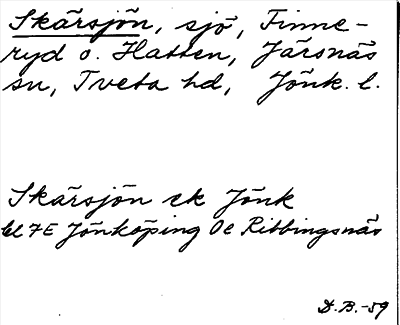 Skärsjön, sjö, Finne-
ryd o. Hatten, Järsnäs
sn, Tveta hd, Jönk. l.
Skärsjön ek Jönk
bl 7E Jönköping Öe Ribbingsnäs
D.B.-59